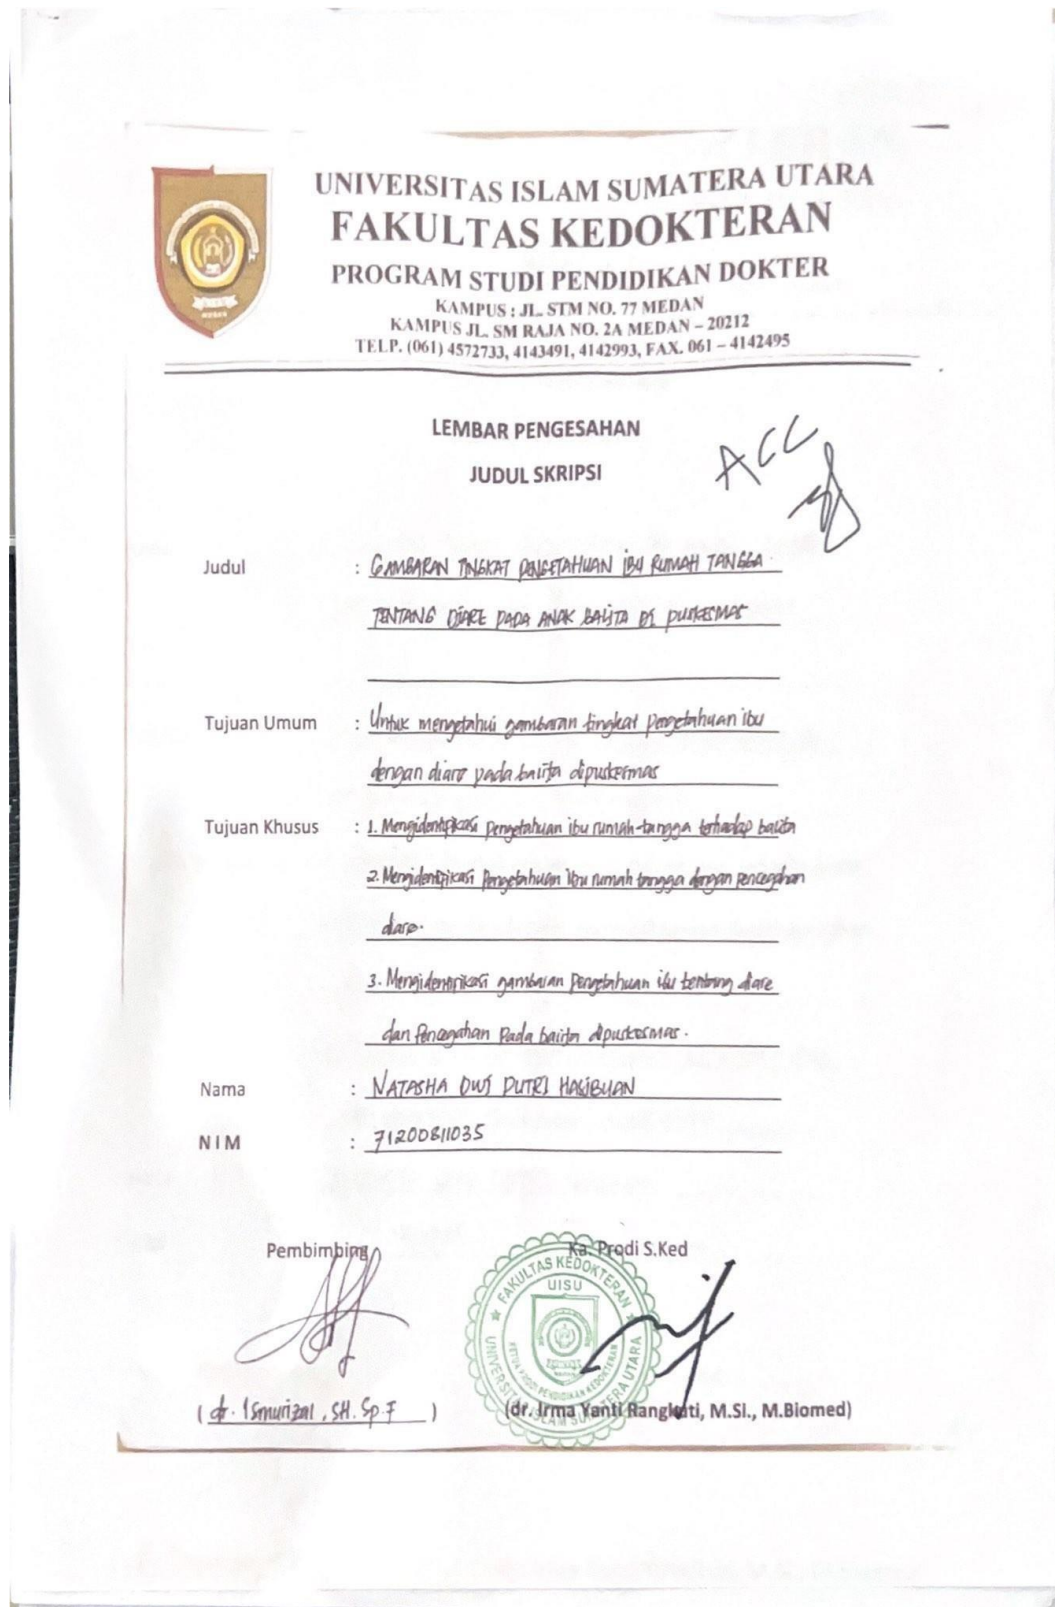 UNIVERSITAS ISLAM SUMATERA UTARA
FAKULTAS KEDOKTERAN
PROGRAM STUDI PENDIDIKAN DOKTER
KAMPUS : JL. STM NO. 77 MEDAN
KAMPUS JL. SM RAJA NO. 2A MEDAN – 20212
TELP. (061) 4572733, 4143491, 4142993, FAX. 061 – 4142495
LEMBAR PENGESAHAN
JUDUL SKRIPSI
ACC
Judul : GAMBARAN TINGKAT PENGETAHUAN IBU RUMAH TANGGA
TENTANG DIARE PADA ANAK BALITA DI PUSKESMAS
Tujuan Umum : Untuk mengetahui gambaran tingkat pengetahuan ibu
dengan diare pada balita dipuskesmas
Tujuan Khusus : 1. Mengidentifikasi pengetahuan ibu rumah tangga terhadap balita
2. Mengidentifikasi Pengetahuan ibu rumah tangga dengan pencegahan
diare.
3. Mengidentifikasi gambaran Pengetahuan ibu tentang diare
dan Pencegahan Pada balita dipuskesmas.
Nama : NATASHA DWI PUTRI HASIBUAN
NIM : 71200811035
Pembimbing
Ka. Prodi S.Ked
FAKULTAS KEDOKTERAN
UISU
KETUA PRODI PENDIDIKAN KEDOKTERAN
UNIVERSITAS ISLAM SUMATERA UTARA
(dr. Ismurizal, SH. Sp.F)
(dr. Irma Yanti Rangkuti, M.SI., M.Biomed)